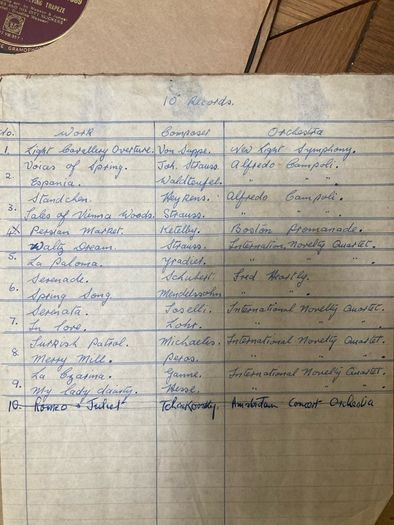 TRAPEZE
SLICKERS
GRAMOPHONE
10" Records.
No. Work Composer Orchestra
1. Light Cavallery Overture. Von Suppe. New Light Symphony.
Voices of Spring. Joh. Strauss. Alfredo Campoli.
2.
Espania. Waldteufel. " "
Standchen. Heykens. Alfredo Campoli.
3.
Tales of Vienna Woods. Strauss. " "
4. Persian Market. Ketelby. Boston Promenade.
Waltz Dream. Strauss. International Novelty Quartet.
5.
La Paloma. Yradier. " "
Serenade. Schubert. Fred Hartly.
6.
Spring Song. Mendelssohn " "
Serenata. Toselli. International Novelty Quartet.
7.
In Love. Lohr. " "
Turkish Patrol. Michaelis. International Novelty Quartet.
8.
Merry Mill. " "
La Czarina. Ganne. International Novelty Quartet.
9.
My lady dainty. Hesse. " "
10. Romeo & Juliet Tchaikovsky. Amsterdam Concert Orchestra